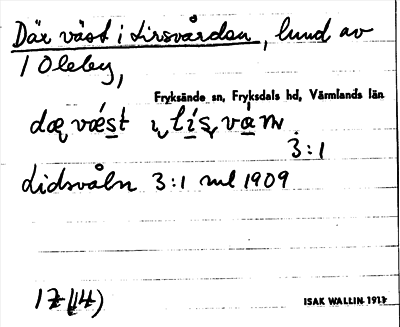 Där väst i Lirsvårdan, lund av
1 Oleby,
Fryksände sn, Fryksdals hd, Värmlands län
dæ væst ı lisvaṇ.
3:1
Lidsvåln 3:1 rul 1909
17(14)
ISAK WALLIN 1911